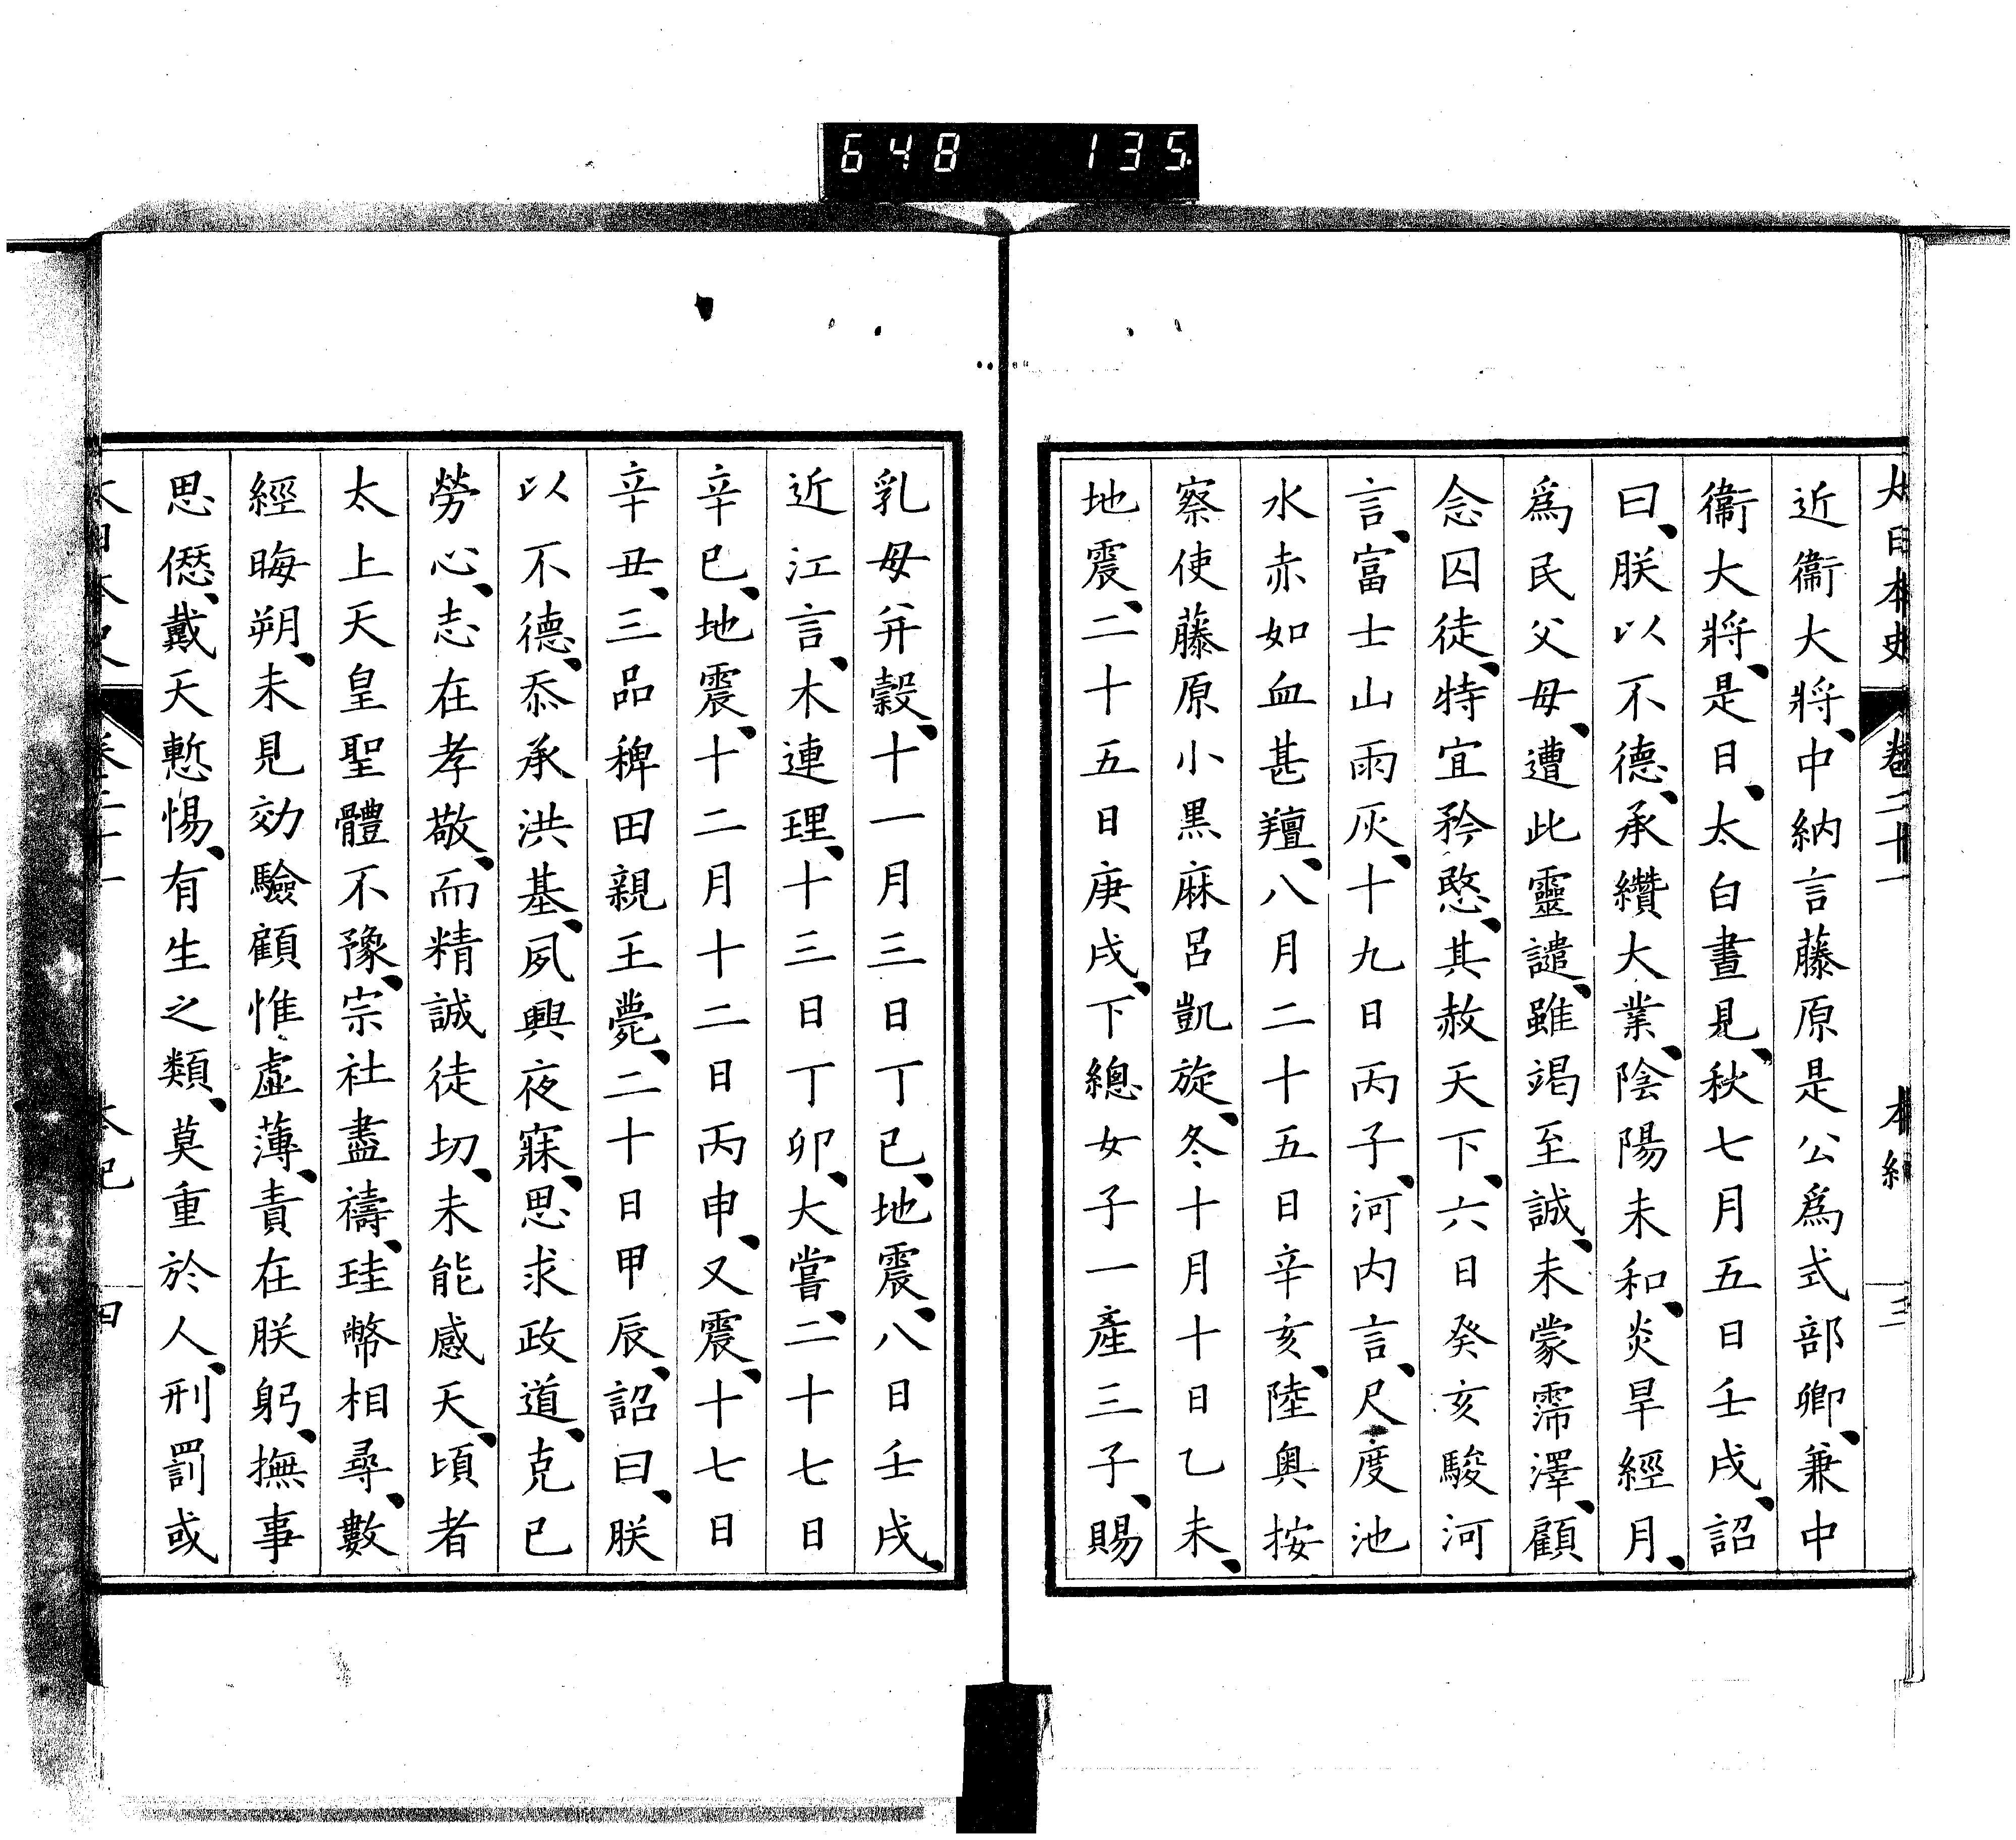 648 135
大日本史 卷二十一 本紀 三
近衞大將、中納言藤原是公爲式部卿、兼中
衞大將、是日、太白晝見、秋七月五日壬戌、詔
曰、朕以不德、承纘大業、陰陽未和、炎旱經月、
爲民父母、遭此靈譴、雖竭至誠、未蒙霈澤、顧
念囚徒、特宜矜愍、其赦天下、六日癸亥駿河
言、富士山雨灰、十九日丙子、河内言、尺度池
水赤如血甚羶、八月二十五日辛亥、陸奥按
察使藤原小黒麻呂凱旋、冬十月十日乙未、
地震、二十五日庚戌、下總女子一產三子、賜
乳母并穀、十一月三日丁巳、地震、八日壬戌、
近江言、木連理、十三日丁卯、大嘗、二十七日
辛巳、地震、十二月十二日丙申、又震、十七日
辛丑、三品稗田親王薨、二十日甲辰、詔曰、朕
以不德、忝承洪基、夙興夜寐、思求政道、克己
勞心、志在孝敬、而精誠徒切、未能感天、頃者
太上天皇聖體不豫、宗社盡禱、珪幣相尋、數
經晦朔、未見効驗顧惟虛薄、責在朕躬、撫事
思僁、戴天慙惕、有生之類、莫重於人、刑罰或
大日本史 卷二十一 本紀 四